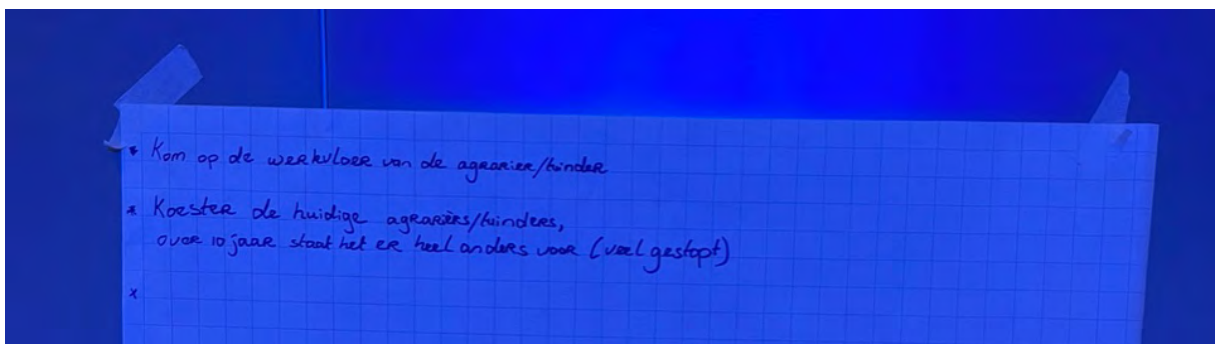 * Kom op de werkvloer van de agrariër/tuinder
* Koester de huidige agrariërs/tuinders,
over 10 jaar staat het er heel anders voor (veel gestopt)
*